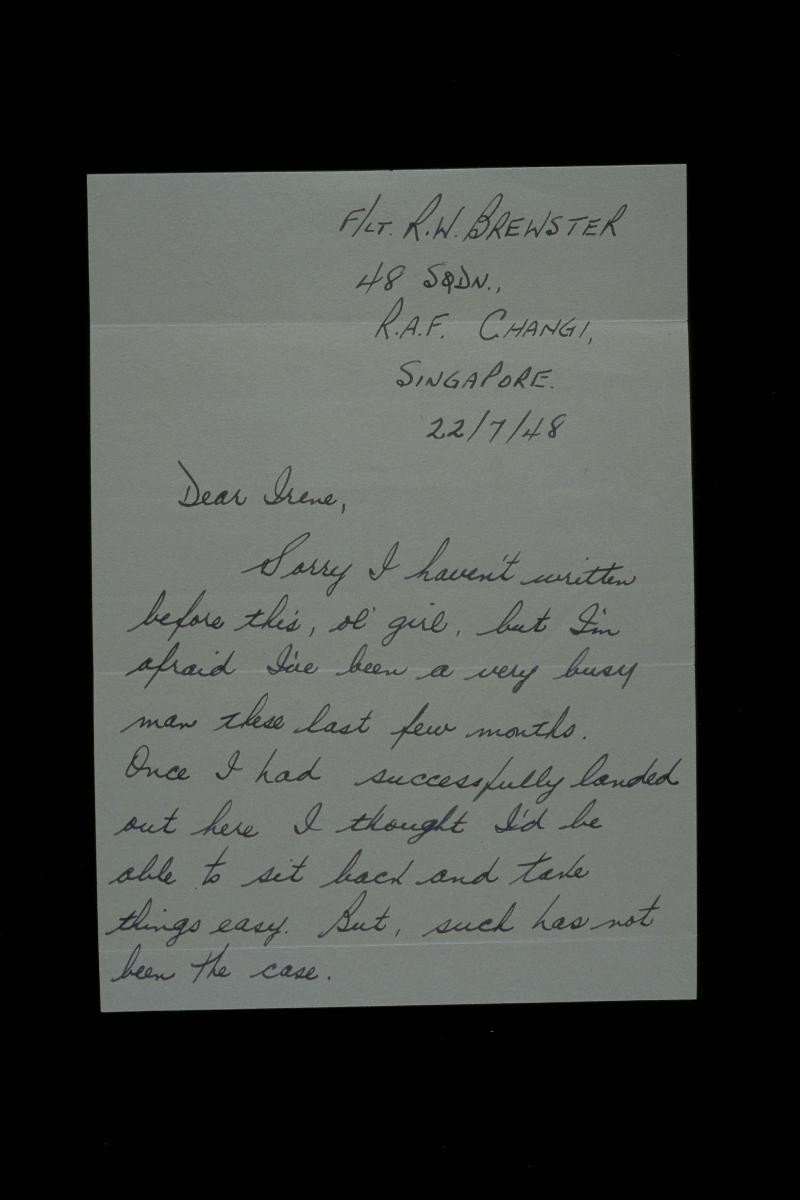 F/LT. R.W. BREWSTER
48 SQDN.,
R.A.F. CHANGI,
SINGAPORE.
22/7/48
Dear Irene,
Sorry I haven't written
before this, ol' girl, but I'm
afraid I've been a very busy
man these last few months.
Once I had successfully landed
out here I thought I'd be
able to sit back and take
things easy. But, such has not
been the case.